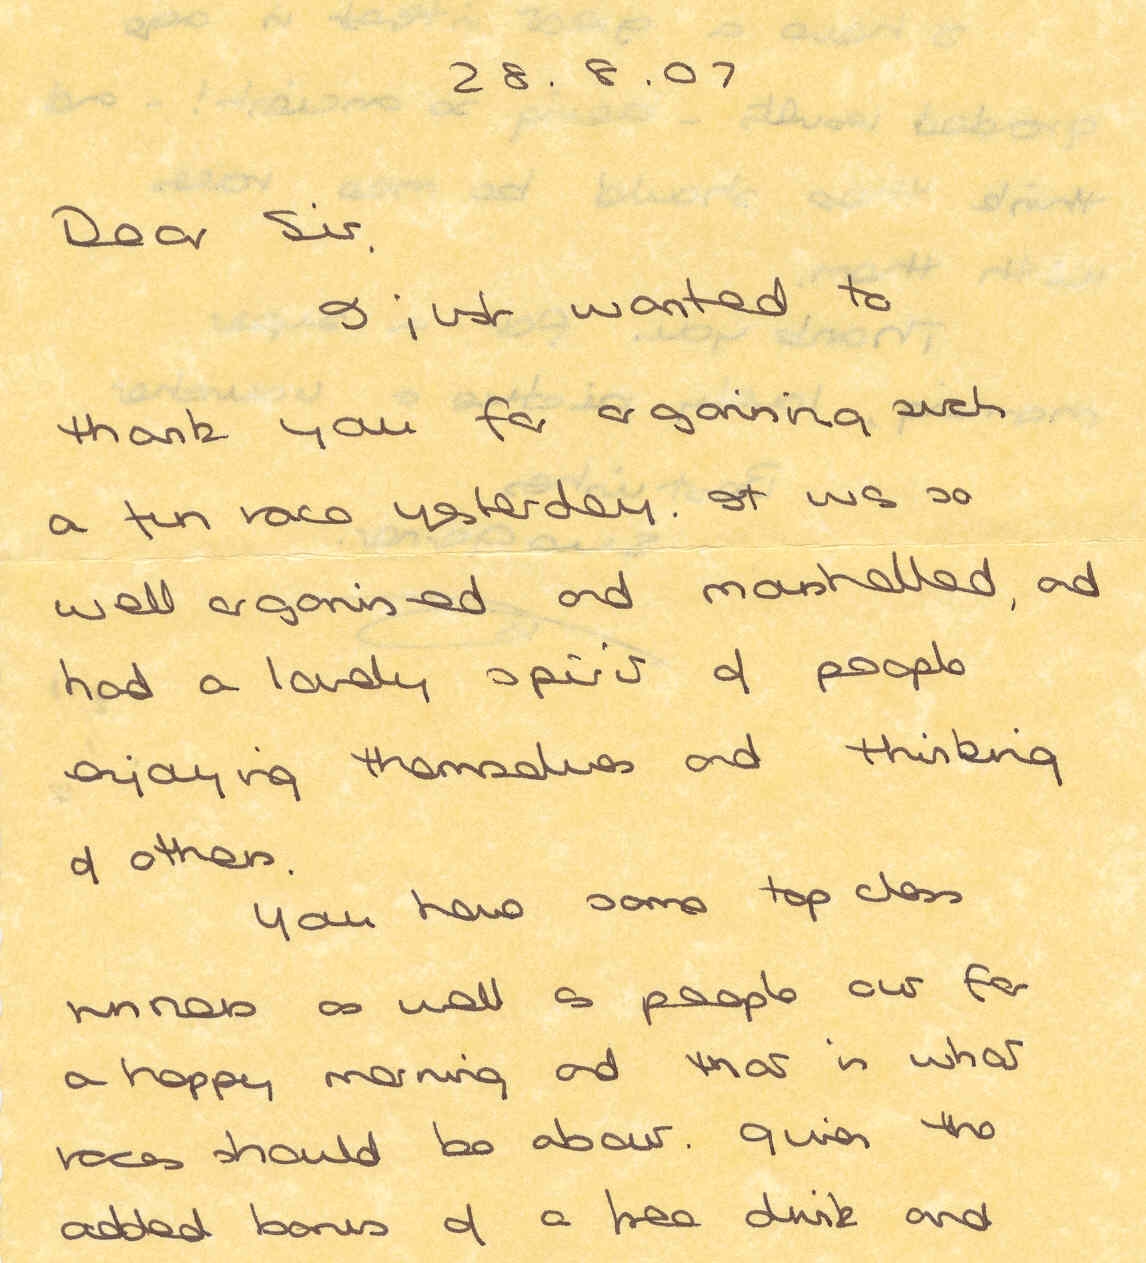 28.8.07
Dear Sir,
I just wanted to
thank you for organising such
a fun race yesterday. It was so
well organised and marshalled, and
had a lovely spirit of people
enjoying themselves and thinking
of others.
You have some top class
runners as well as people out for
a happy morning and that is what
races should be about. Given the
added bonus of a free drink and